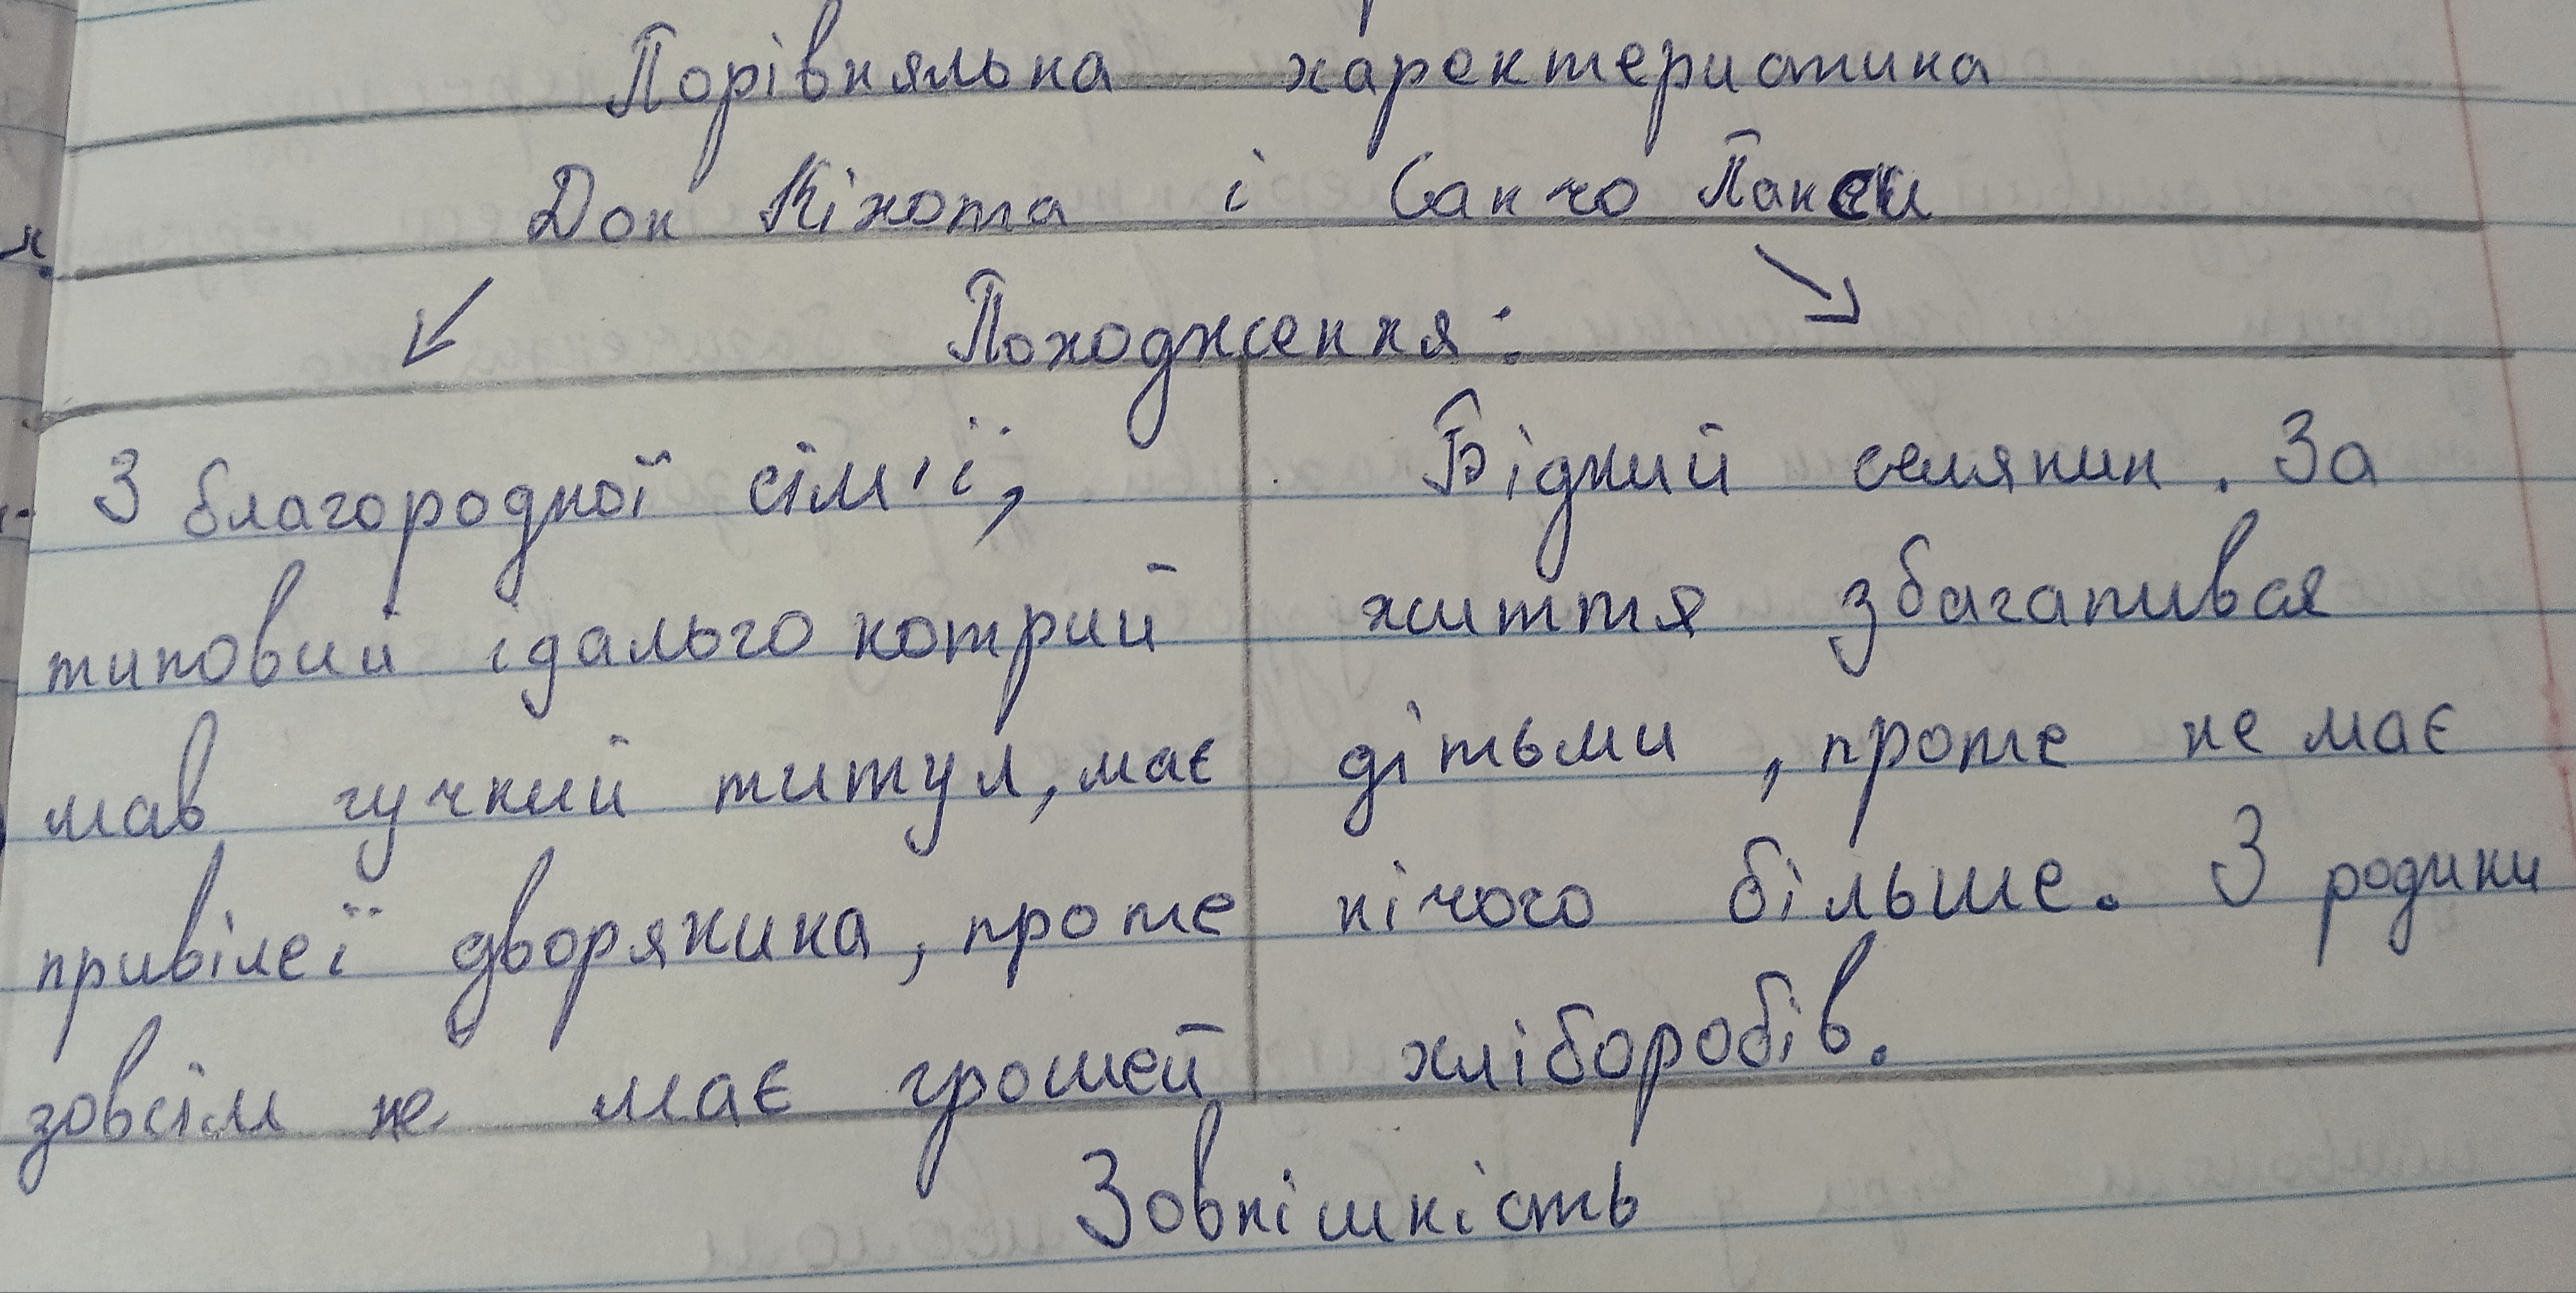 Порівняльна характеристика
Дон Кіхота і Санчо Панси
Походження:
З благородної сім'ї,
типовий ідальго котрий
мав гучний титул, має
привілеї дворянина, проте
зовсім не має грошей
Бідний селянин. За
життя збагатився
дітьми, проте не має
нічого більше. З родини
хліборобів.
Зовнішність